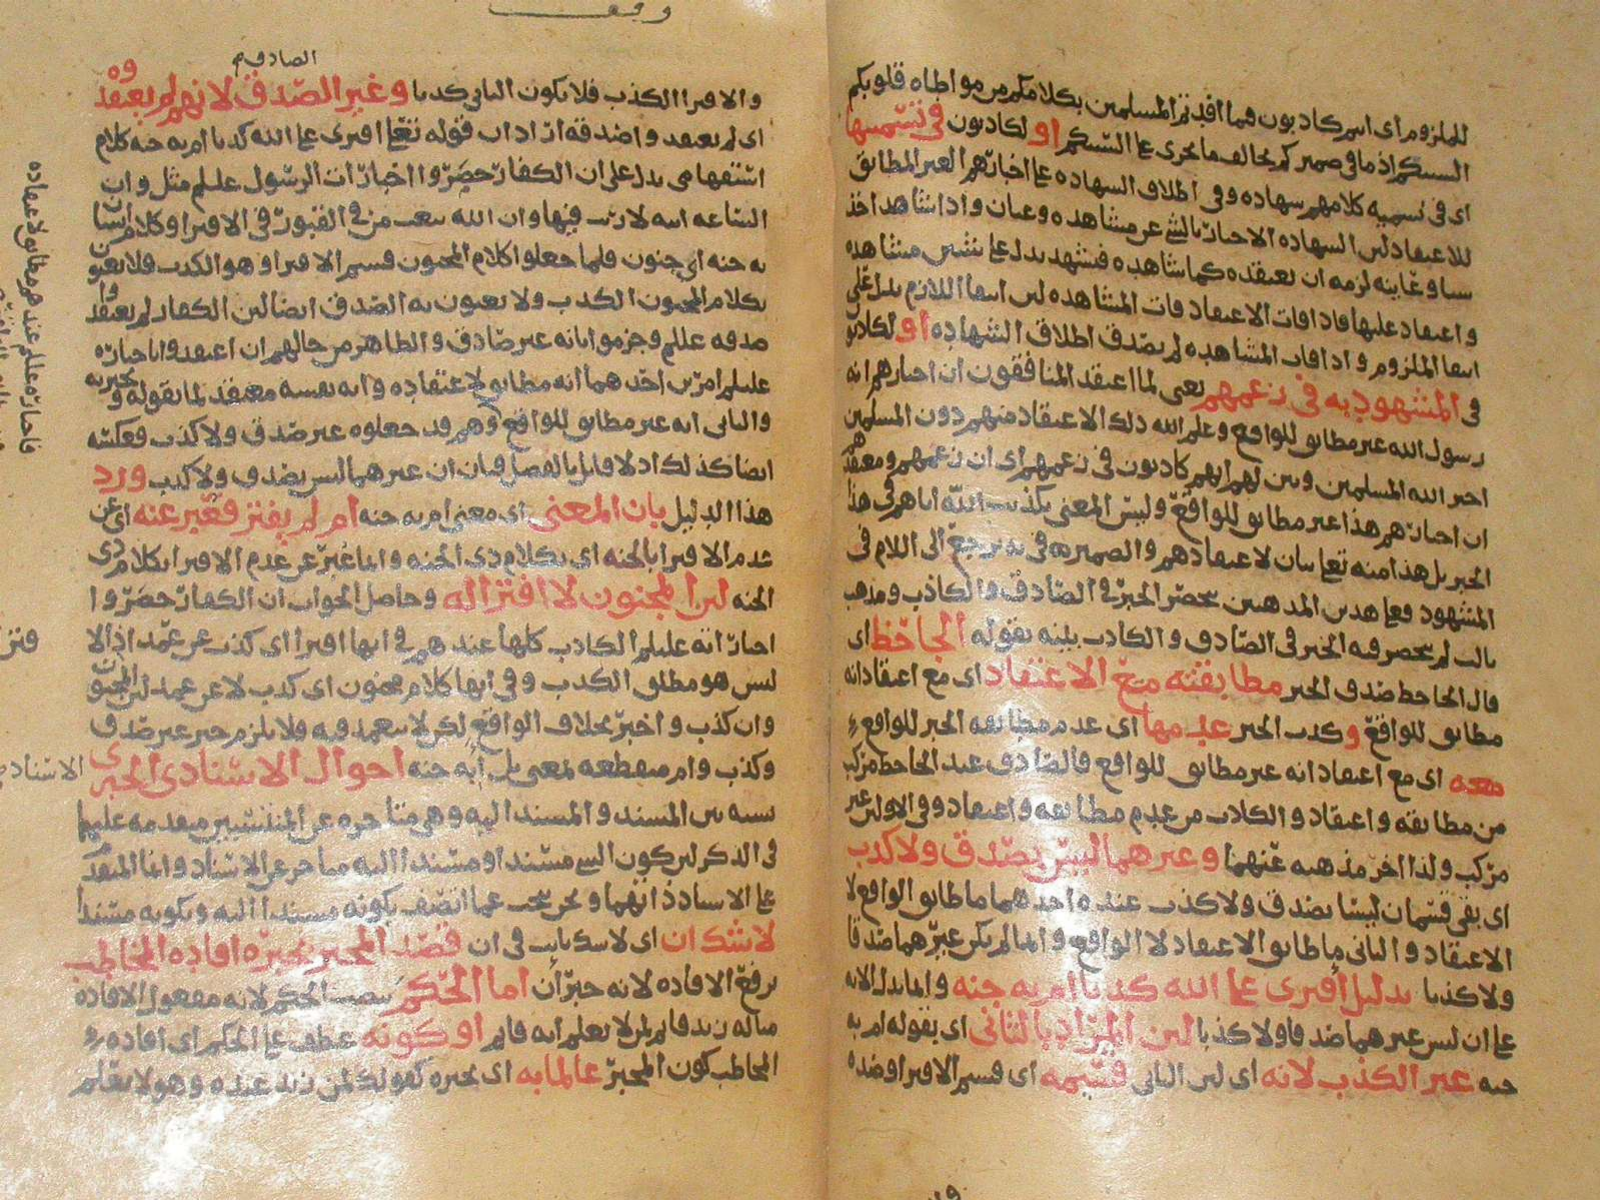 للملزوم اى انهم كاذبون فيما افدتم المسلمين بكلامكم من مواطاه قلوبكم
السنتكم اذ ما فى ضميركم يخالف ما يجرى على السنتكم او لكاذبون فى تسميتها
اى فى تسميه كلامهم شهاده وفى اطلاق الشهاده على اخبارهم الغير المطابق
للاعتقاد لان الشهاده الاخبار بالشئ عن مشاهده وعيان واذا شاهد احد
شيا وعاينه لزمه ان يعتقده كما شاهده فتشهد يدل على شيئين مشاهده
واعتقاد عليها فاذا فات الاعتقاد فات المشاهده لان انتفا اللازم يدل على
انتفا الملزوم واذا فات المشاهده لم يصدق اطلاق الشهاده او لكاذبو
فى المشهود به فى زعمهم يعنى لما اعتقد المنافقون ان اخبارهم انه
رسول الله غير مطابق للواقع وعلم الله ذلك الاعتقاد منهم دون المسلمين
اخبر الله المسلمين وبين لهم انهم كاذبون فى زعمهم اى ان زعمهم ومعتقدهم
ان اخبارهم هذا غير مطابق للواقع وليس المعنى يكذب الله اياهم فى هذا
الخبر بل هذا منه تعالى بيان لاعتقادهم والضمير فى به يرجع الى اللام فى
المشهود فعلى هذين المذهبين ينحصر الخبر فى الصادق والكاذب ومذهب
ثالث لم ينحصر فيه الخبر فى الصادق والكاذب بينه بقوله الجاحظ اى
قال الجاحظ صدق الخبر مطابقته مع الاعتقاد اى مع اعتقاد انه
مطابق للواقع وكذب الخبر عدمها اى عدم مطابقه الخبر للواقع
معه اى مع اعتقاد انه غير مطابق للواقع فالصادق عند الجاحظ مركب
من مطابقه واعتقاد والكاذب من عدم مطابقه واعتقاد وفى الاولين غير
مركب ولذا اخر مذهبه عنهما وغيرهما ليس بصدق ولا كذب
اى بقى قسمان ليسا بصدق ولا كذب عنده احدهما ما طابق الواقع لا
الاعتقاد والثانى ما طابق الاعتقاد لا الواقع وانما لم يكن غيرهما صدقا
ولا كذبا بدليل افترى على الله كذبا ام به جنه وانما يدل الايه
على ان ليس غيرهما صدقا ولا كذبا لان المراد بالثانى اى بقوله ام به
جنه غير الكذب لانه اى لان الثانى قسيمه اى قسيم الافترا وضده
وقف
والافترا الكذب فلا يكون الثانى كذبا وغير الصدق لانهم لم يعتقدوه
الصادق م
اى لم يعتقدوا صدقه اراد ان قوله تعالى افترى على الله كذبا ام به جنه كلام
استفهامى يدل على ان الكفار حصروا اخبارات الرسول عليلم مثل وان
الساعه اتيه لا ريب فيها وان الله يبعث من فى القبور فى الافترا وكلام انسان
به جنه اى جنون فلما جعلوا كلام المجنون قسيم الافترا وهو الكذب فلا يعنون
بكلام المجنون الكذب ولا يعنون به الصدق ايضا لان الكفار لم يعتقدوا
صدقه عليلم وجزموا بانه غير صادق والظاهر من حالهم ان اعتقدوا باخباره
عليلم امرين احدهما انه مطابق لاعتقاده وانه بنفسه معتقد لما يقوله ويخبر به
والثانى انه غير مطابق للواقع وهم قد جعلوه غير صدق ولا كذب فعكسه
ايضا كذلك اذ لا قايل بالفصل فبان ان غيرهما ليس بصدق ولا كذب ورد
هذا الدليل بان المعنى اى معنى ام به جنه ام لم يفتر فعبر عنه اى عن
عدم الافترا بالجنه اى بكلام ذى الجنه وانما عبر عن عدم الافترا بكلام ذى
الجنه لان المجنون لا افترا له وحاصل الجواب ان الكفار حصروا
اخباراته عليلم الكاذب كلها عندهم فى انها افترا اى كذب عن عمد اذ الا
ليس هو مطلق الكذب وفى انها كلام مجنون اى كذب لا عن عمد لان المجنون
وان كذب واخبر بخلاف الواقع لكن لا يتعمد فيه فلا يلزم خبر غير صدق
وكذب وام منقطعه بمعنى بل ابه جنه احوال الاسنادى الخبرى
نسبه بين المسند والمسند اليه وهى متاخره عن المنتسبين متقدمه عليها
فى الذكر لان كون الشئ مسندا او مسندا اليه متاخر عن الاسناد وانما المتقدم
على الاسناد ذاتهما ونحن نبحث عما اتصف بكونه مسندا اليه وبكونه مسندا
لا شك ان اى لا شك ثابت فى ان قصد المخبر بخبره افاده المخاطب
برفع الافاده لانه خبر ان اما الحكم بنصب الحكم لانه مفعول الافاده
مثاله زيد قايم لمن لا يعلم انه قايم او كونه عطف على الحكم اى افاده
المخاطب كون المخبر عالما به اى بخبره كقولك لمن زيد عنده وهو لا يعلم
فاخباره عليلم عندهم مطابق لاعتقاده
الاسناد